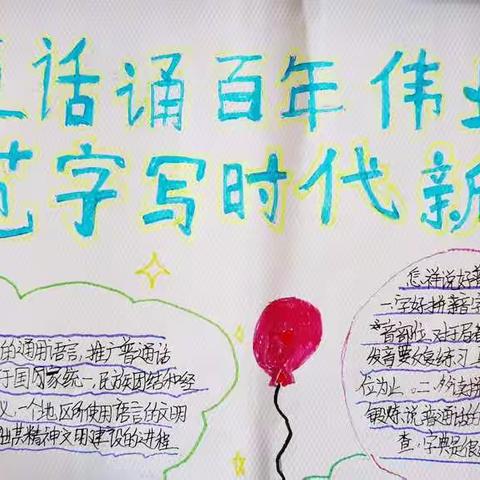 话诵百年伟业
范字写时代新
的通用语言,推广普通话
于国家统一,民族团结和经
义,一个地区所使用语言的文明
出其精神文明建设的进程
怎样说好普
一.学好拼音
音部位,对于
发音要反复练习
位为止。二.多读拼
锻炼说普通话的
查.字典是很